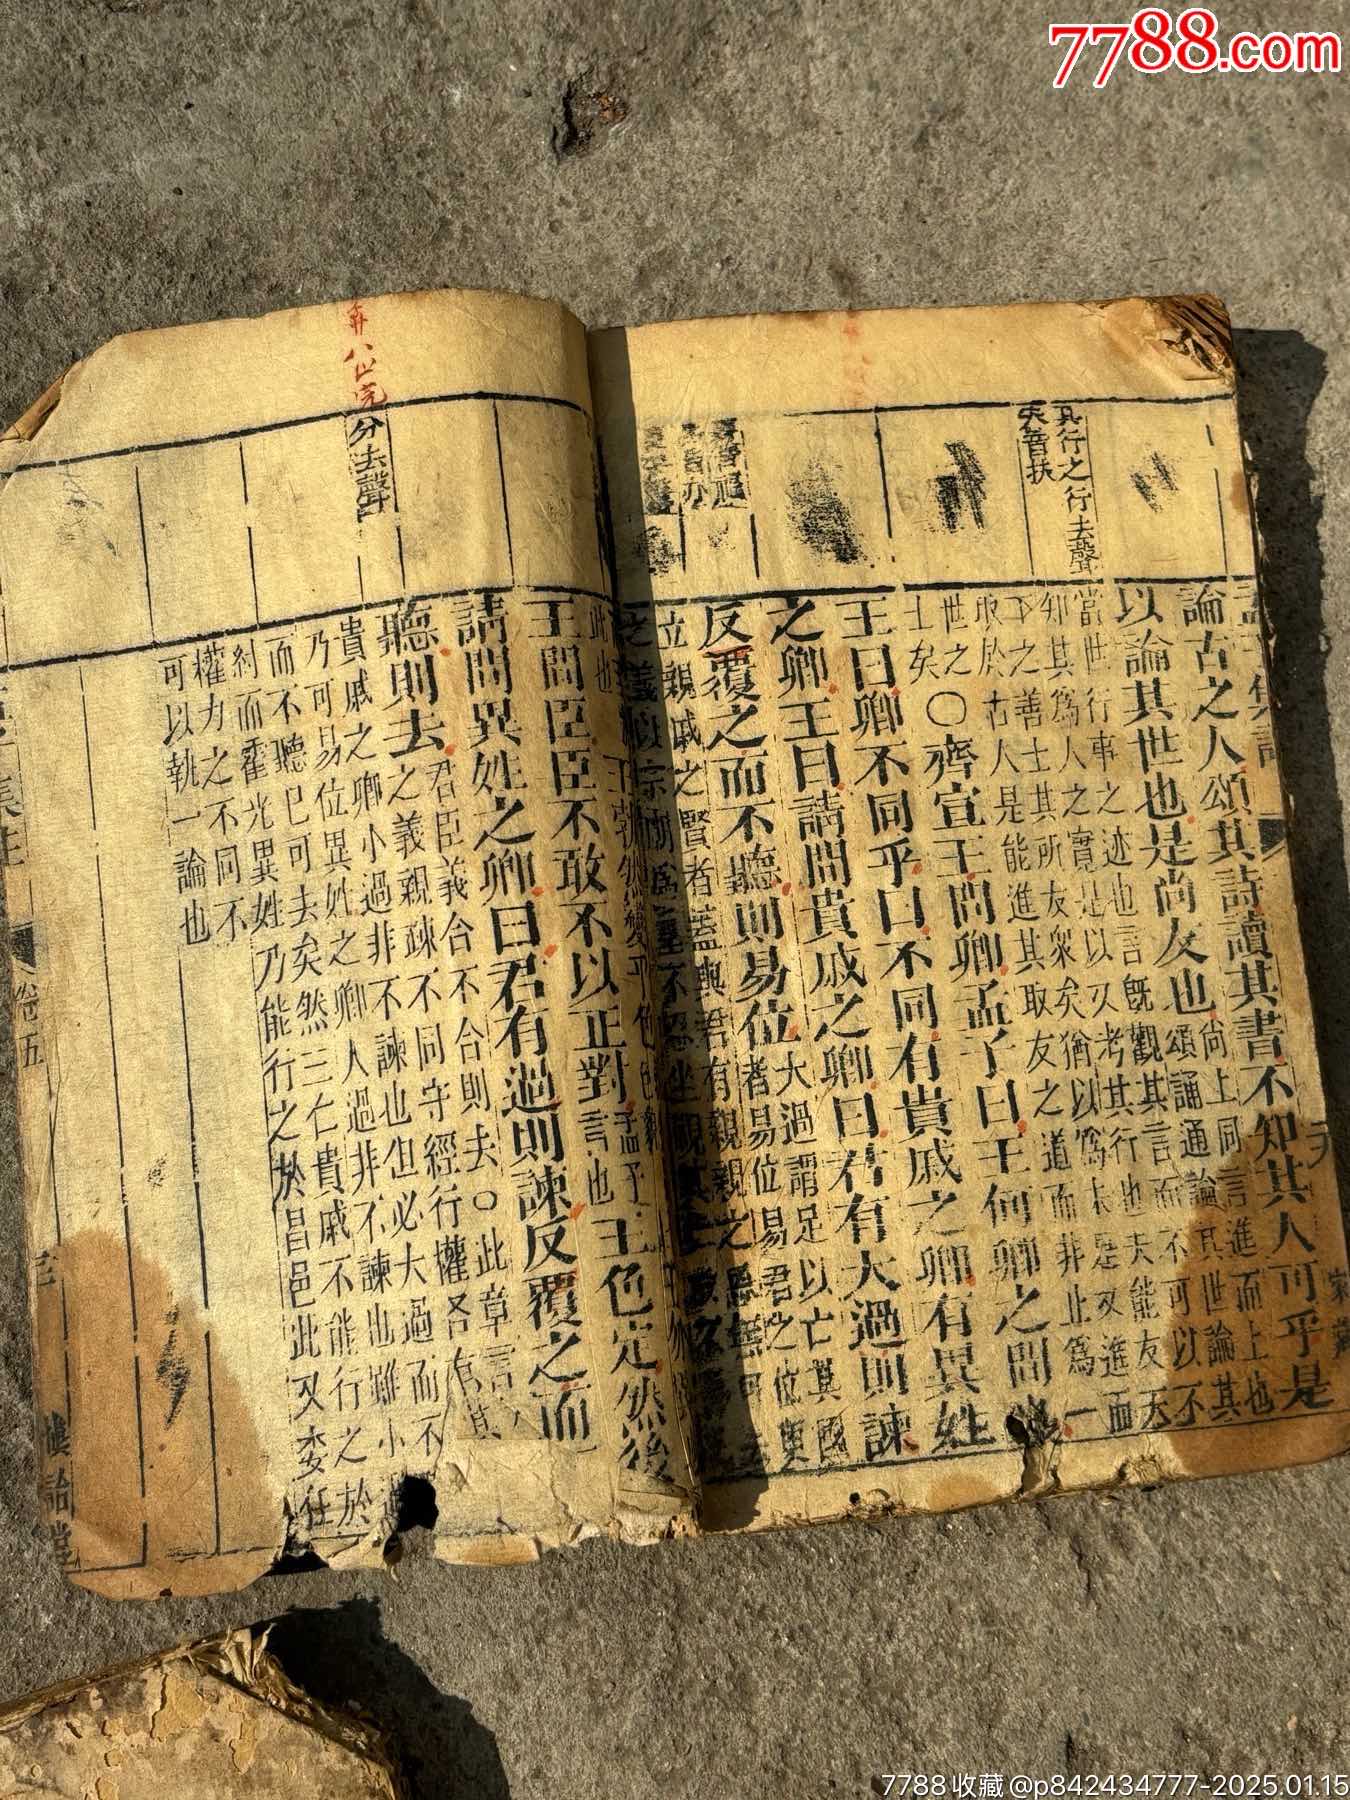 7788.com
其行之行去聲
夫音扶
論古之人頌其詩讀其書不知其人可乎是
以論其世也是尚友也
尚上同言進而上也
頌誦通論其世論其
當世行事之迹也言既觀其言而不可以不
知其為人之實是以又考其行也夫能友天
下之善士其所友眾矣猶以為未足又進而
取於古人是能進其取友之道而非止為一
世之
士矣
○齊宣王問卿孟子曰王何卿之問
王曰卿不同乎曰不同有貴戚之卿有異姓
之卿王曰請問貴戚之卿曰君有大過則諫
反覆之而不聽則易位
大過謂足以亡其國
者易位易君之位更
立親戚之賢者蓋與君有親親之恩無可
之義以宗廟為重不忍坐視其
此也
王勃然變乎色
分去聲
王問臣臣不敢不以正對
孟子
言也
王色定然後
請問異姓之卿曰君有過則諫反覆之而
聽則去
君臣義合不合則去○此章言
之義親疎不同守經行權各有其
貴戚之卿小過非不諫也但必大過而不
乃可易位異姓之卿大過非不諫也雖小過
而不聽已可去矣然三仁貴戚不能行之於
紂而霍光異姓乃能行之於昌邑此又委任
權力之不同不
可以執一論也
卷五
7788收藏@p842434777-2025.01.15